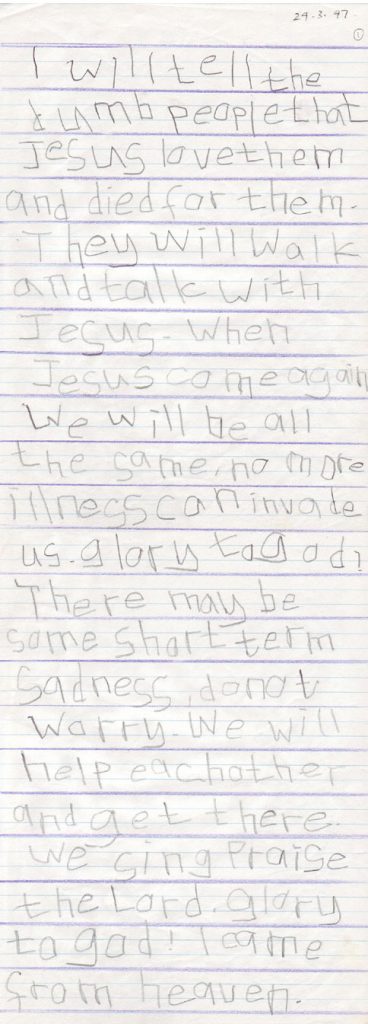 29.3.97
1
I will tell the
dumb people that
Jesus love them
and died for them.
They will walk
and talk with
Jesus. When
Jesus come again
We will be all
the same, no more
illness can invade
us. glory to god!
There may be
some short term
sadness, do not
worry. We will
help each other
and get there.
We sing Praise
the Lord. glory
to god! I came
from heaven.